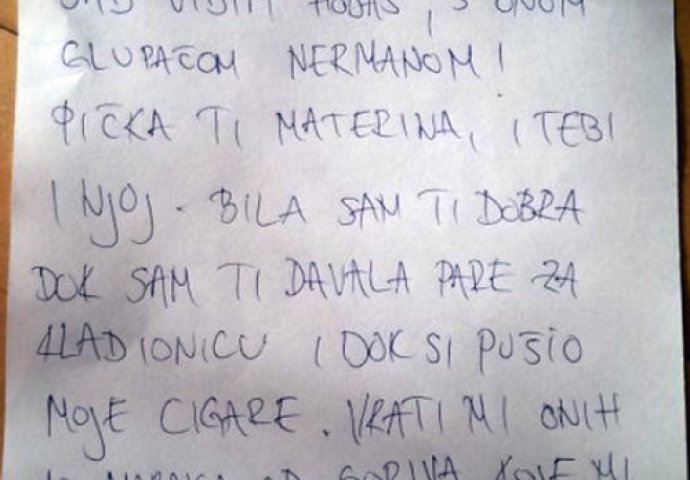 VIDIM HODAŠ, S ONOM
GLUPAČOM NERMANOM!
PIČKA TI MATERINA, I TEBI
I NJOJ. BILA SAM TI DOBRA
DOK SAM TI DAVALA PARE ZA
KLADIONICU I DOK SI PUŠIO
MOJE CIGARE. VRATI MI ONIH
MARAKA OD GORIVA KOJE MI